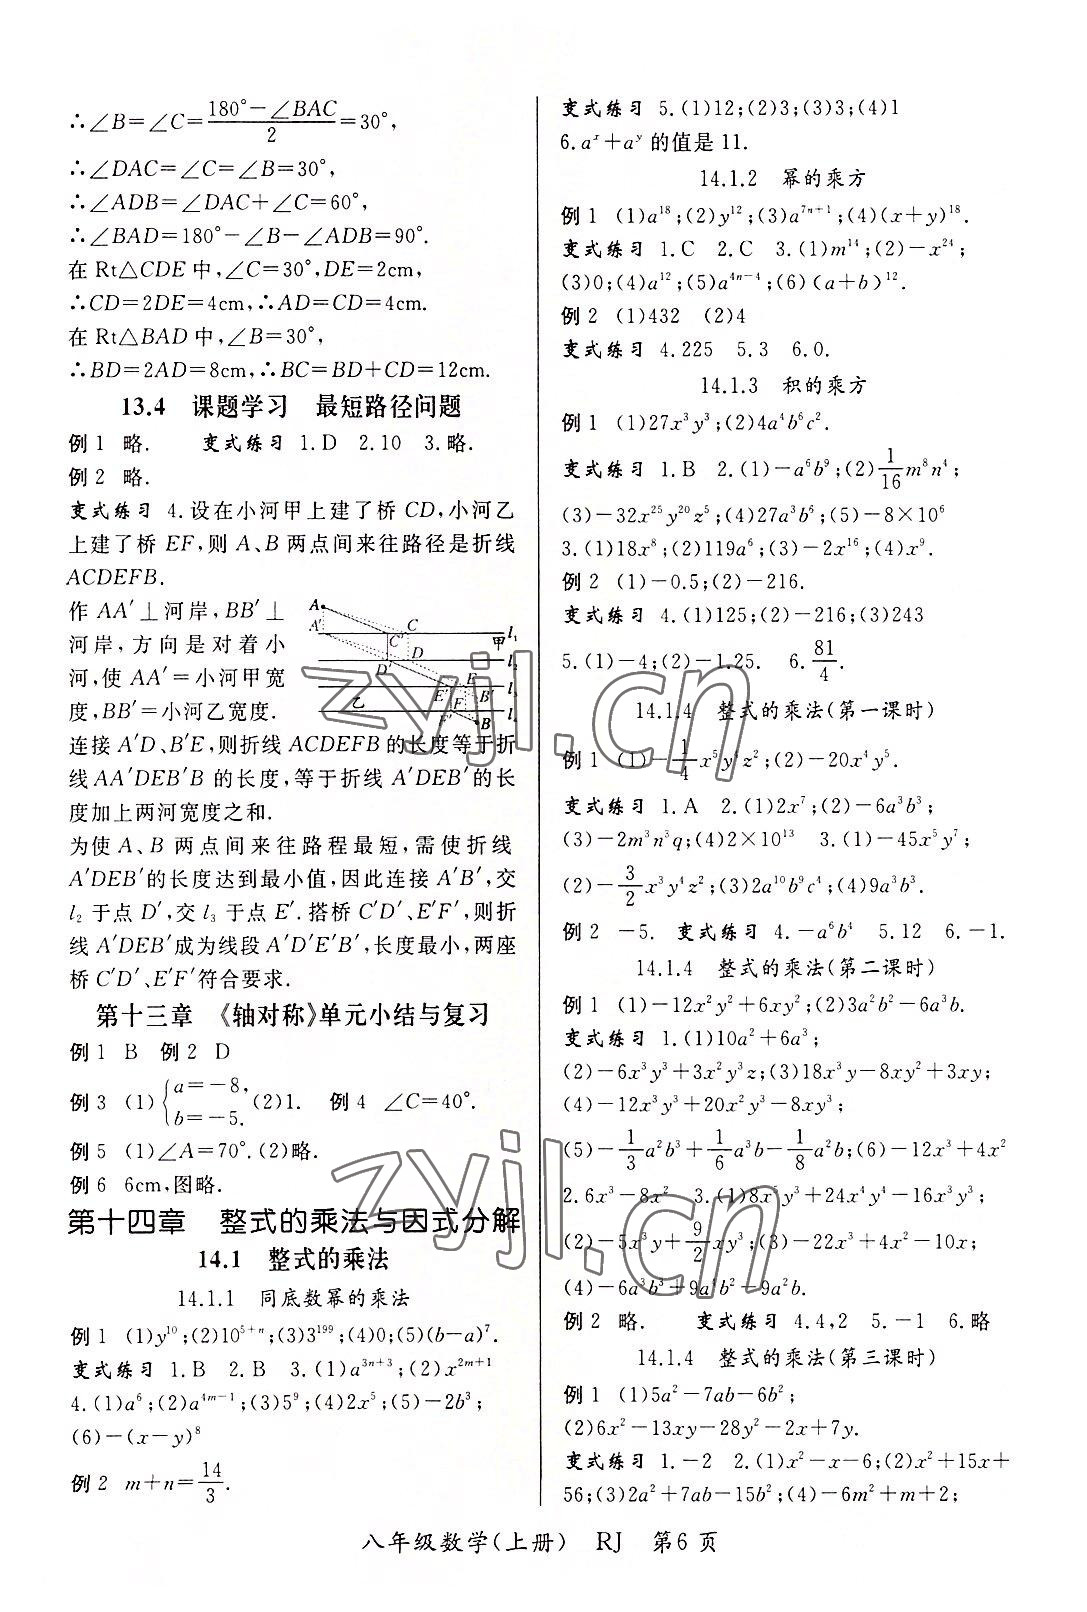 ∴∠B=∠C=(180°-∠BAC)/2=30°,
∴∠DAC=∠C=∠B=30°,
∴∠ADB=∠DAC+∠C=60°,
∴∠BAD=180°-∠B-∠ADB=90°.
在 Rt△CDE 中,∠C=30°,DE=2cm,
∴CD=2DE=4cm,∴AD=CD=4cm.
在 Rt△BAD 中,∠B=30°,
∴BD=2AD=8cm,∴BC=BD+CD=12cm.
13.4 课题学习 最短路径问题
例 1 略. 变式练习 1.D 2.10 3.略.
例 2 略.
变式练习 4.设在小河甲上建了桥 CD,小河乙
上建了桥 EF,则 A、B 两点间来往路径是折线
ACDEFB.
作 AA′⊥河岸,BB′⊥
河岸,方向是对着小
河,使 AA′=小河甲宽
度,BB′=小河乙宽度.
A
A′ C′ C 甲 l₁
D′ D l₂
E′ E B′ l₃
乙 F′ F B l₄
连接 A′D、B′E,则折线 ACDEFB 的长度等于折
线 AA′DEB′B 的长度,等于折线 A′DEB′的长
度加上两河宽度之和.
为使 A、B 两点间来往路程最短,需使折线
A′DEB′的长度达到最小值,因此连接 A′B′,交
l₂ 于点 D′,交 l₃ 于点 E′.搭桥 C′D′、E′F′,则折
线 A′DEB′成为线段 A′D′E′B′,长度最小,两座
桥 C′D′、E′F′符合要求.
第十三章 《轴对称》单元小结与复习
例 1 B 例 2 D
例 3 (1){a=-8, b=-5. (2)1. 例 4 ∠C=40°.
例 5 (1)∠A=70°.(2)略.
例 6 6cm,图略.
第十四章 整式的乘法与因式分解
14.1 整式的乘法
14.1.1 同底数幂的乘法
例 1 (1)y¹⁰;(2)10⁵⁺ⁿ;(3)3¹⁹⁹;(4)0;(5)(b-a)⁷.
变式练习 1.B 2.B 3.(1)a³ⁿ⁺³;(2)x²ᵐ⁺¹
4.(1)a⁶;(2)a⁴ᵐ⁻¹;(3)5⁹;(4)2x⁵;(5)-2b³;
(6)-(x-y)⁸
例 2 m+n=14/3.
变式练习 5.(1)12;(2)3;(3)3;(4)1
6.aˣ+aʸ 的值是 11.
14.1.2 幂的乘方
例 1 (1)a¹⁸;(2)y¹²;(3)a⁷ⁿ⁺¹;(4)(x+y)¹⁸.
变式练习 1.C 2.C 3.(1)m¹⁴;(2)-x²⁴;
(3)0;(4)a¹²;(5)a⁴ⁿ⁻⁴;(6)(a+b)¹².
例 2 (1)432 (2)4
变式练习 4.225 5.3 6.0.
14.1.3 积的乘方
例 1 (1)27x³y³;(2)4a⁴b⁶c².
变式练习 1.B 2.(1)-a⁶b⁹;(2)1/16m⁸n⁴;
(3)-32x²⁵y²⁰z⁵;(4)27a³b⁶;(5)-8×10⁶
3.(1)18x⁸;(2)119a⁶;(3)-2x¹⁶;(4)x⁹.
例 2 (1)-0.5;(2)-216.
变式练习 4.(1)125;(2)-216;(3)243
5.(1)-4;(2)-1.25. 6.81/4.
14.1.4 整式的乘法(第一课时)
例 1 (1)-1/4x⁵y⁴z²;(2)-20x⁴y⁵.
变式练习 1.A 2.(1)2x⁷;(2)-6a³b³;
(3)-2m³n³q;(4)2×10¹³ 3.(1)-45x⁵y⁷;
(2)-3/2x³y⁴z²;(3)2a¹⁰b⁹c⁴;(4)9a³b³.
例 2 -5. 变式练习 4.-a⁶b⁴ 5.12 6.-1.
14.1.4 整式的乘法(第二课时)
例 1 (1)-12x²y²+6xyz;(2)3a²b²-6a³b.
变式练习 1.(1)10a²+6a³;
(2)-6x³y³+3x²y³z;(3)18x³y-8xy²+3xy;
(4)-12x³y³+20x²y²-8xy³;
(5)-1/3a²b³+1/6a³b-1/8a²b;(6)-12x³+4x²
2.6x³-8x² 3.(1)8x⁵y³+24x⁴y⁴-16x³y³;
(2)-5x³y+9/2xy³;(3)-22x³+4x²-10x;
(4)-6a³b³+9a²b²-9a²b.
例 2 略. 变式练习 4.4,2 5.-1 6.略
14.1.4 整式的乘法(第三课时)
例 1 (1)5a²-7ab-6b²;
(2)6x²-13xy-28y²-2x+7y.
变式练习 1.-2 2.(1)x²-x-6;(2)x²+15x+
56;(3)2a²+7ab-15b²;(4)-6m²+m+2;
zyjl.cn
zyjl.cn
八年级数学(上册) RJ 第 6 页